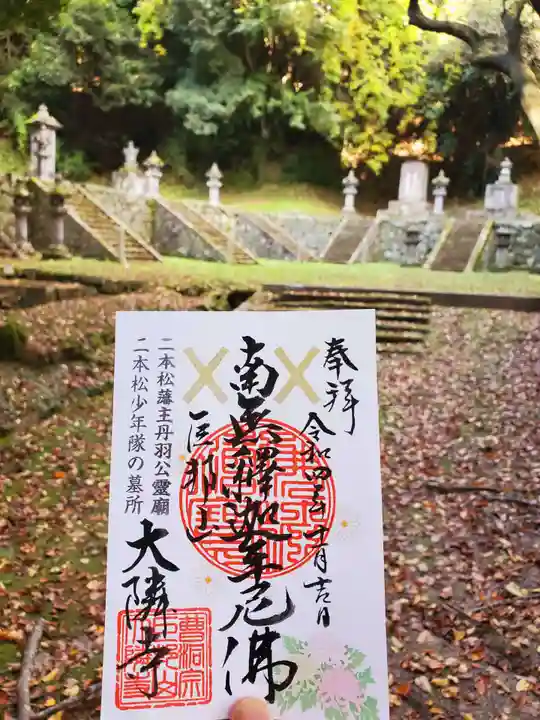 奉拝
令和四年十一月十七日
南無釋迦牟尼佛
巨邦山
二本松藩主丹羽公靈廟
二本松少年隊の墓所
大隣寺
曹洞宗